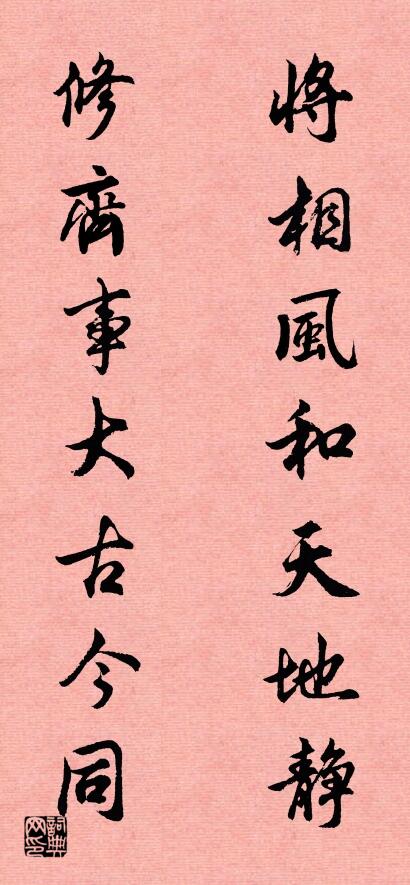 将相風和天地静
修齊事大古今同
詞典網印